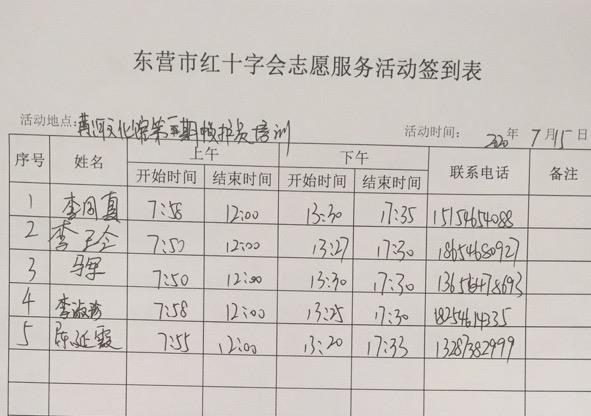 东营市红十字会志愿服务活动签到表
活动地点: 黄河文化馆第一期救护员培训 活动时间: 2020年7月15日
序号 姓名 上午 下午 联系电话 备注
开始时间 结束时间 开始时间 结束时间
1 李同真 7:58 12:00 13:30 17:35 15154654088
2 李子全 7:50 12:00 13:27 17:30 18654680927
3 马军 7:50 12:00 13:30 17:30 13656478693
4 李淑珍 7:58 12:00 13:25 17:30
5 陈延霞 7:55 12:00 13:20 17:33 13287382999